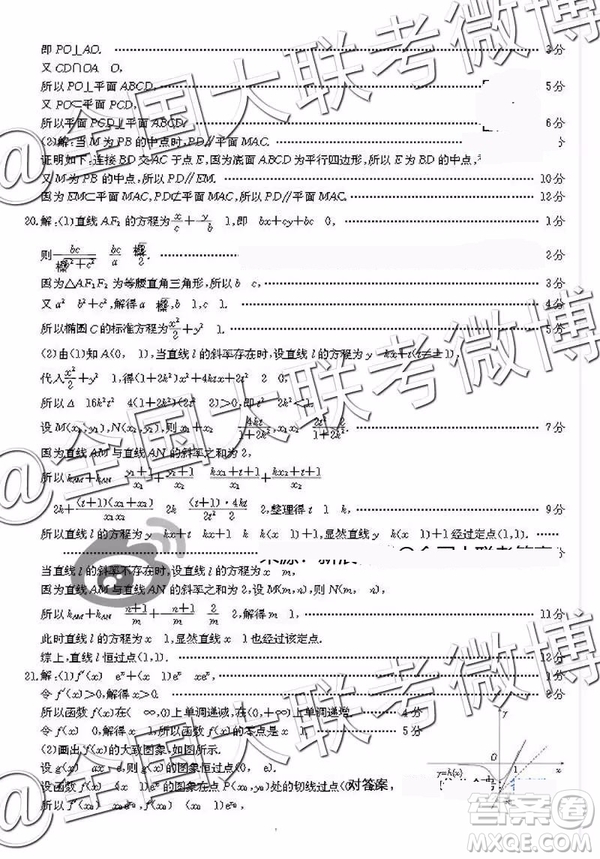 即PO⊥AO. 3分
又CD∩OA O,
所以PO⊥平面ABCD. 5分
又PO⊂平面PCD,
所以平面PCD⊥平面ABCD. 6分
(2)解:当M为PB的中点时,PD∥平面MAC.
证明如下:连接BD交AC于点E,因为底面ABCD为平行四边形,所以E为BD的中点,
又M为PB的中点,所以PD∥EM. 10分
因为EM⊂平面MAC,PD⊄平面MAC,所以PD∥平面MAC. 12分
20.解:(1)直线AF₂的方程为x/c+y/b 1,即 bx+cy+bc 0, 1分
2分
因为△AF₁F₂为等腰直角三角形,所以b c,
又a² b²+c²,解得a ,b 1,c 1.
所以椭圆C的标准方程为x²/2+y² 1.
(2)由(1)知A(0, 1),当直线l的斜率存在时,设直线l的方程为y kx+t(t≠±1),
代入x²/2+y² 1,得(1+2k²)x²+4ktx+2t² 2 0,
所以Δ 16k²t² 4(1+2k²)(2t² 2)>0,即t² 2k²<1.
设M(x₁,y₁),N(x₂,y₂),则x₁+x₂ 4kt/1+2k², x₁x₂ 2t² 2/1+2k². 7分
因为直线AM与直线AN的斜率之和为2,
所以kAM+kAN y₁+1/x₁+y₂+1/x₂ kx₁+t+1/x₁+kx₂+t+1/x₂
2k+(t+1)(x₁+x₂)/x₁x₂ 2k (t+1)·4kt/2t² 2 2,整理得t 1 k, 9分
所以直线l的方程为y kx+t kx+1 k k(x 1)+1,显然直线y k(x 1)+1经过定点(1,1).
当直线l的斜率不存在时,设直线l的方程为x m,
因为直线AM与直线AN的斜率之和为2,设M(m,n),则N(m, n),
所以kAM+kAN n+1/m+ n+1/m 2/m 2,解得m 1, 11分
此时直线l的方程为x 1,显然直线x 1也经过该定点.
综上,直线l恒过点(1,1). 12分
21.解:(1)f′(x) eˣ+(x 1)eˣ xeˣ, 1分
令f′(x)>0,解得x>0.
所以函数f(x)在( ∞,0)上单调递减,在(0,+∞)上单调递增.
令f(x) 0,解得x 1,所以函数f(x)的零点是x 1. 4分
(2)画出f(x)的大致图象,如图所示.
设g(x) ax e,则g(x)的图象恒过点(0, e).
设函数f(x) (x 1)eˣ的图象在点P(x₀,y₀)处的切线过点(0 对答案,
所以f′(x₀) x₀e ,f(x₀) (x₀ 1)e ,
y
O
1
x
y=h(x)
@全国大联考微博
@全国大联考微博
@全国大联考微博
答案圈
MXQE.COM